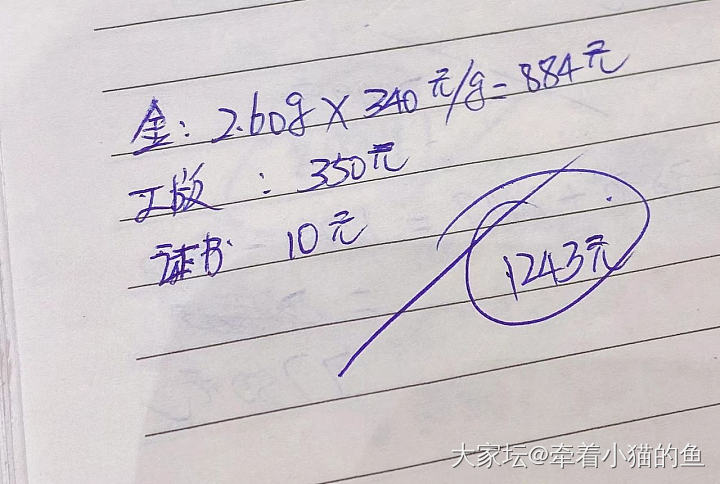 金：2.60g×340元/g=884元
工版：350元
证书 10元
1243元
大家坛@牵着小猫的鱼